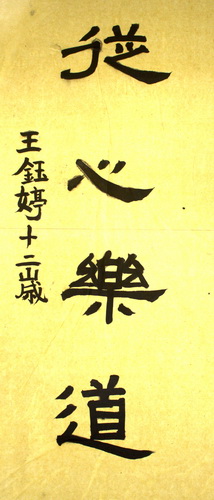 從心樂道
王鈺婷十二歲